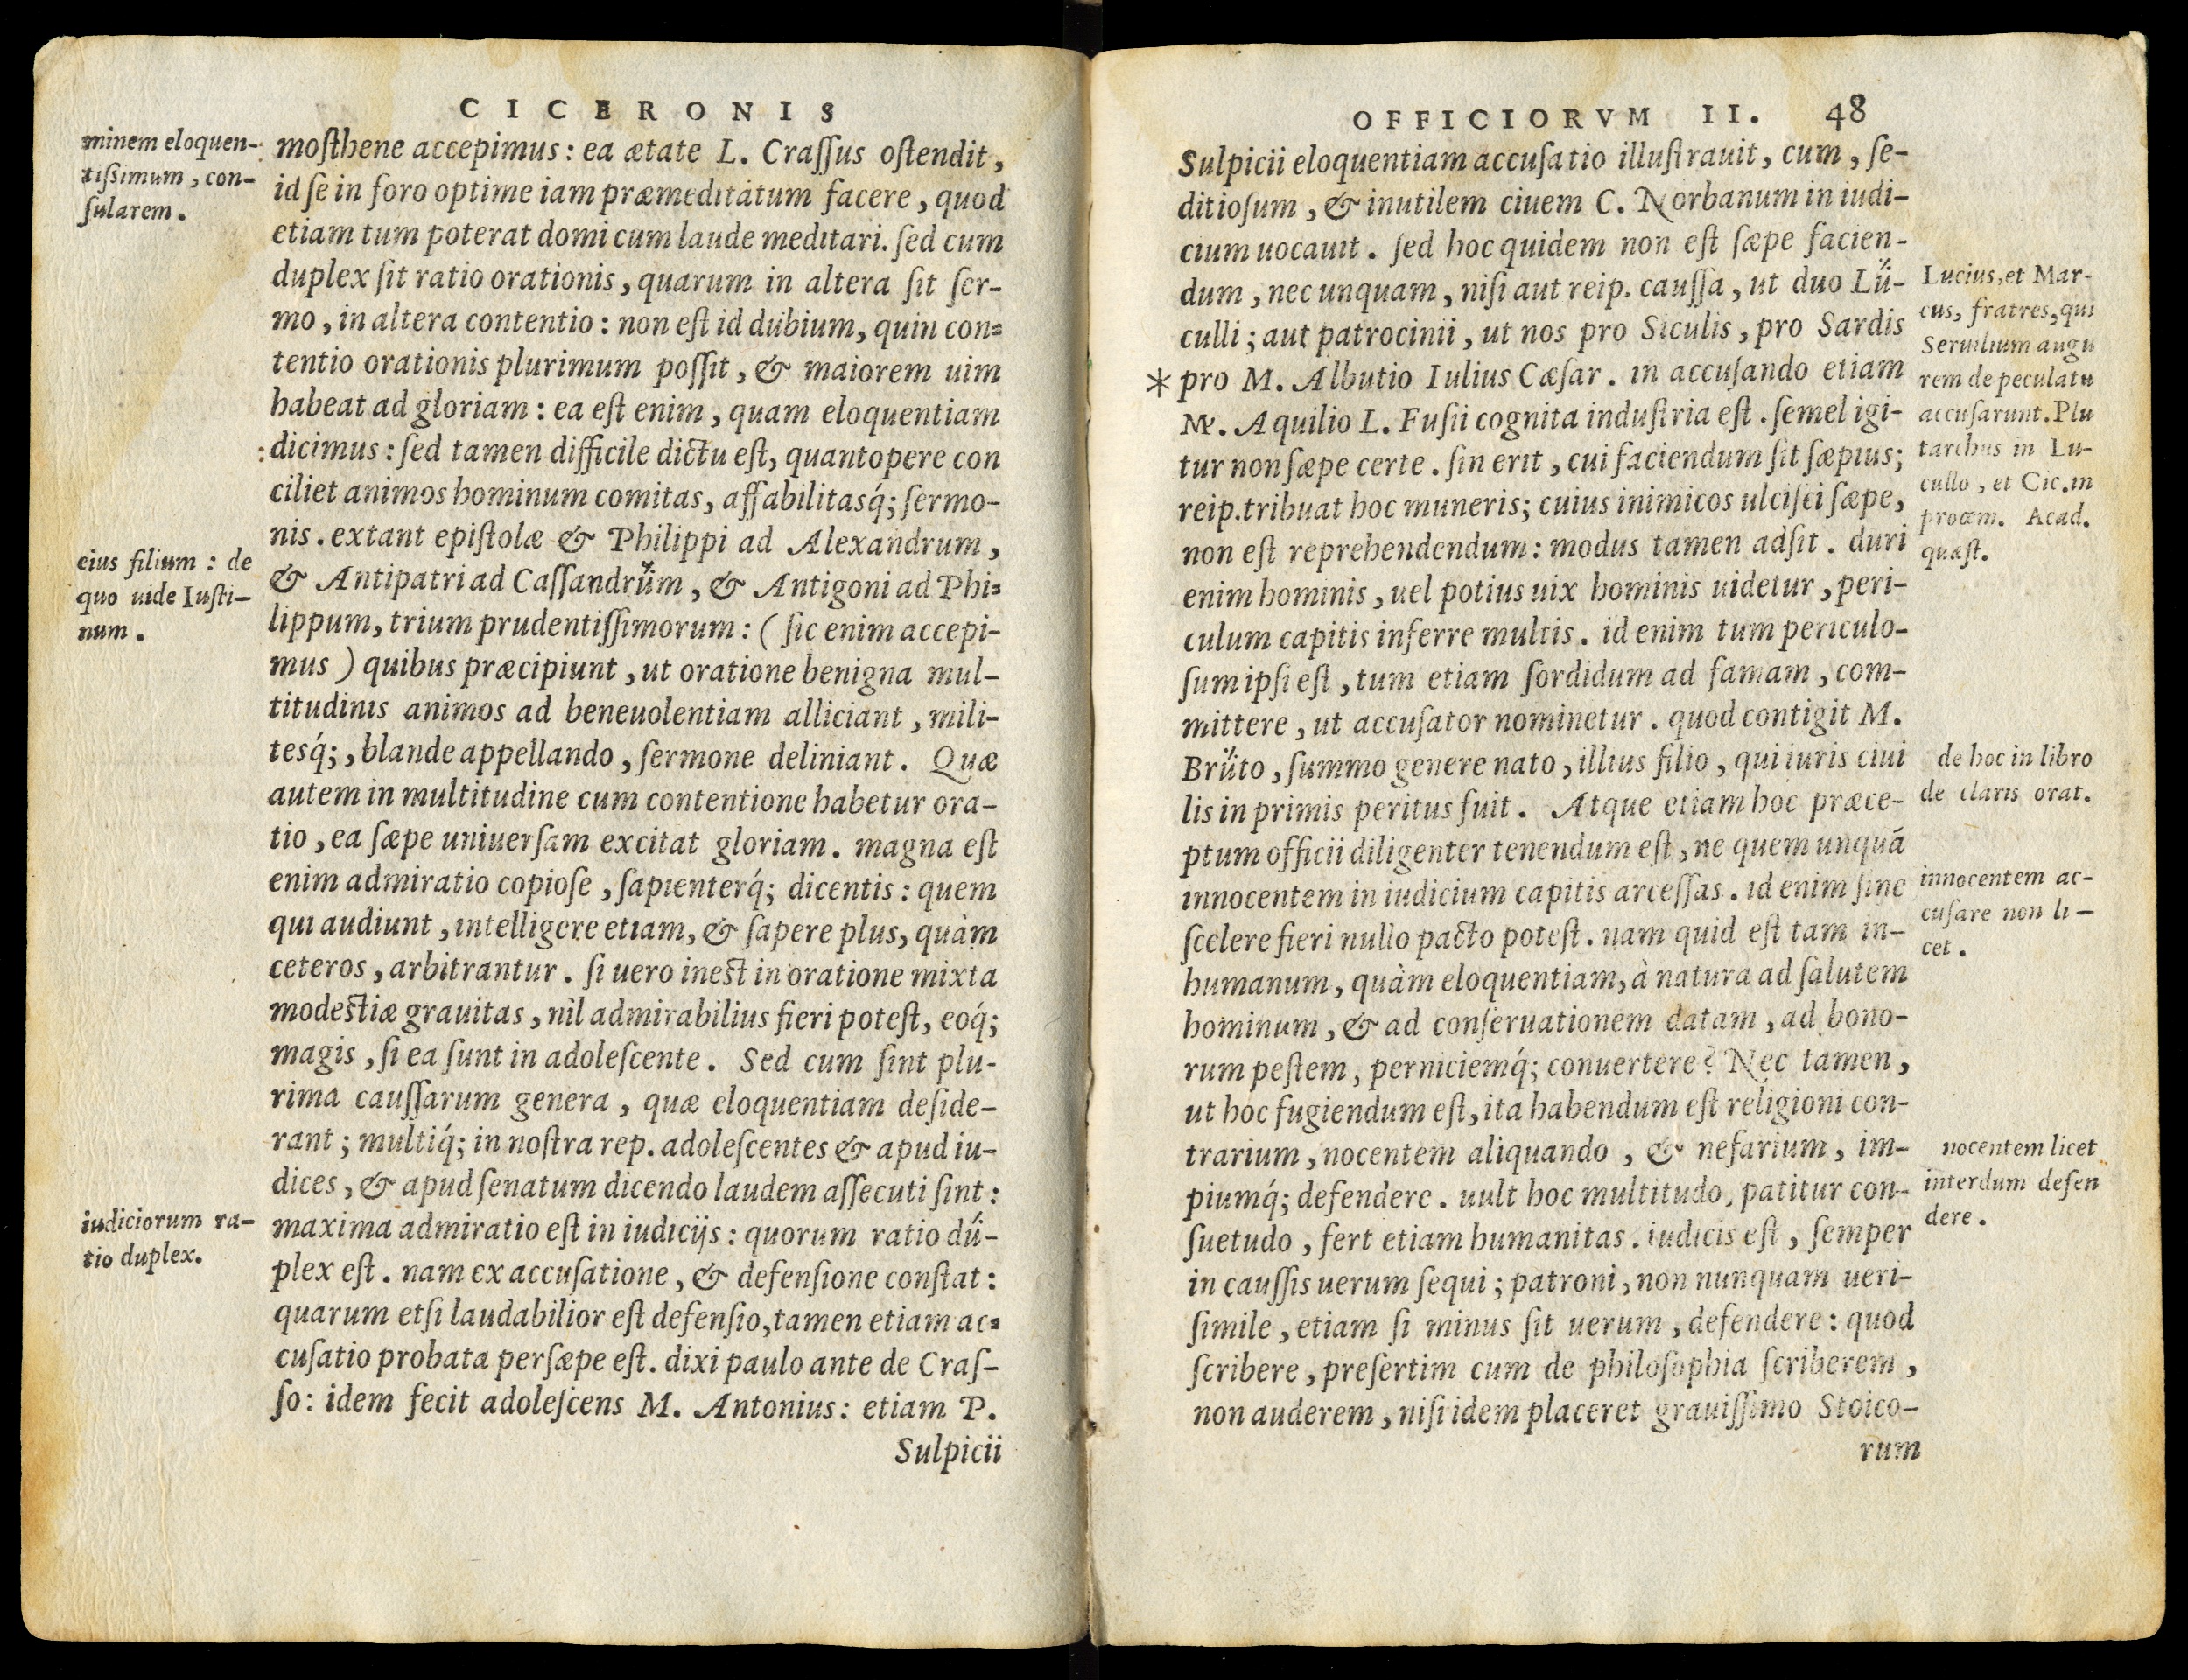 CICERONIS
minem eloquen-
tiſsimum, con-
ſularem.
moſthene accepimus: ea ætate L. Craſſus oſtendit,
id ſe in foro optime iam præmeditatum facere, quod
etiam tum poterat domi cum laude meditari. ſed cum
duplex ſit ratio orationis, quarum in altera ſit ſer-
mo, in altera contentio: non eſt id dubium, quin con=
tentio orationis plurimum poſſit, & maiorem uim
habeat ad gloriam: ea eſt enim, quam eloquentiam
:dicimus: ſed tamen difficile dictu eſt, quantopere con
ciliet animos hominum comitas, affabilitasq́; ſermo-
nis. extant epiſtolæ & Philippi ad Alexandrum,
& Antipatri ad Caſſandrum, & Antigoni ad Phi=
lippum, trium prudentiſſimorum: (ſic enim accepi-
mus) quibus præcipiunt, ut oratione benigna mul-
titudinis animos ad beneuolentiam alliciant, mili-
tesq́;, blande appellando, ſermone deliniant. Quæ
autem in multitudine cum contentione habetur ora-
tio, ea ſæpe uniuerſam excitat gloriam. magna eſt
enim admiratio copioſe, ſapienterq́; dicentis: quem
qui audiunt, intelligere etiam, & ſapere plus, quàm
ceteros, arbitrantur. ſi uero inest in oratione mixta
modestiæ grauitas, nìl admirabilius fieri poteſt, eoq́;
magis, ſi ea ſunt in adoleſcente. Sed cum ſint plu-
rima cauſſarum genera, quæ eloquentiam deſide-
rant; multiq́; in noſtra rep. adoleſcentes & apud iu-
dices, & apud ſenatum dicendo laudem aſſecuti ſint:
maxima admiratio eſt in iudicijs: quorum ratio du-
plex eſt. nam ex accuſatione, & defenſione conſtat:
quarum etſi laudabilior eſt defenſio, tamen etiam ac=
cuſatio probata perſæpe eſt. dixi paulo ante de Craſ-
ſo: idem fecit adoleſcens M. Antonius: etiam P.
Sulpicii
eius filium: de
quo uide Iuſti-
num.
iudiciorum ra-
tio duplex.
OFFICIORVM II. 48
Sulpicii eloquentiam accuſatio illuſtrauit, cum, ſe-
ditioſum, & inutilem ciuem C. Norbanum in iudi-
cium uocauit. ſed hoc quidem non eſt ſæpe facien-
dum, nec unquam, niſi aut reip. cauſſa, ut duo Lu-
culli; aut patrocinii, ut nos pro Siculis, pro Sardis
*pro M. Albutio Iulius Cæſar. in accuſando etiam
M. Aquilio L. Fuſii cognita induſtria eſt. ſemel igi-
tur non ſæpe certe. ſin erit, cui faciendum ſit ſæpius;
reip. tribuat hoc muneris; cuius inimicos ulciſci ſæpe,
non eſt reprehendendum: modus tamen adſit. duri
enim hominis, uel potius uix hominis uidetur, peri-
culum capitis inferre multis. id enim tum periculo-
ſum ipſi eſt, tum etiam ſordidum ad famam, com-
mittere, ut accuſator nominetur. quod contigit M.
Bruto, ſummo genere nato, illius filio, qui iuris ciui
lis in primis peritus fuit. Atque etiam hoc præce-
ptum officii diligenter tenendum eſt, ne quem unquá
innocentem in iudicium capitis arceſſas. id enim ſine
ſcelere fieri nullo pacto poteſt. nam quid eſt tam in-
humanum, quàm eloquentiam, à natura ad ſalutem
hominum, & ad conſeruationem datam, ad bono-
rum peſtem, perniciemq́; conuertere? Nec tamen,
ut hoc fugiendum eſt, ita habendum eſt religioni con-
trarium, nocentem aliquando, & nefarium, im-
piumq́; defendere. uult hoc multitudo, patitur con-
ſuetudo, fert etiam humanitas. iudicis eſt, ſemper
in cauſſis uerum ſequi; patroni, non nunquam ueri-
ſimile, etiam ſi minus ſit uerum, defendere: quod
ſcribere, preſertim cum de philoſophia ſcriberem,
non auderem, niſi idem placeret grauiſſimo Stoico-
rum
Lucius, et Mar-
cus, fratres, qui
Seruilium augu
rem de peculatu
accuſarunt. Plu
tarchus in Lu-
cullo, et Cic. in
proœm. Acad.
quæſt.
de hoc in libro
de claris orat.
innocentem ac-
cuſare non li-
cet.
nocentem licet
interdum defen
dere.